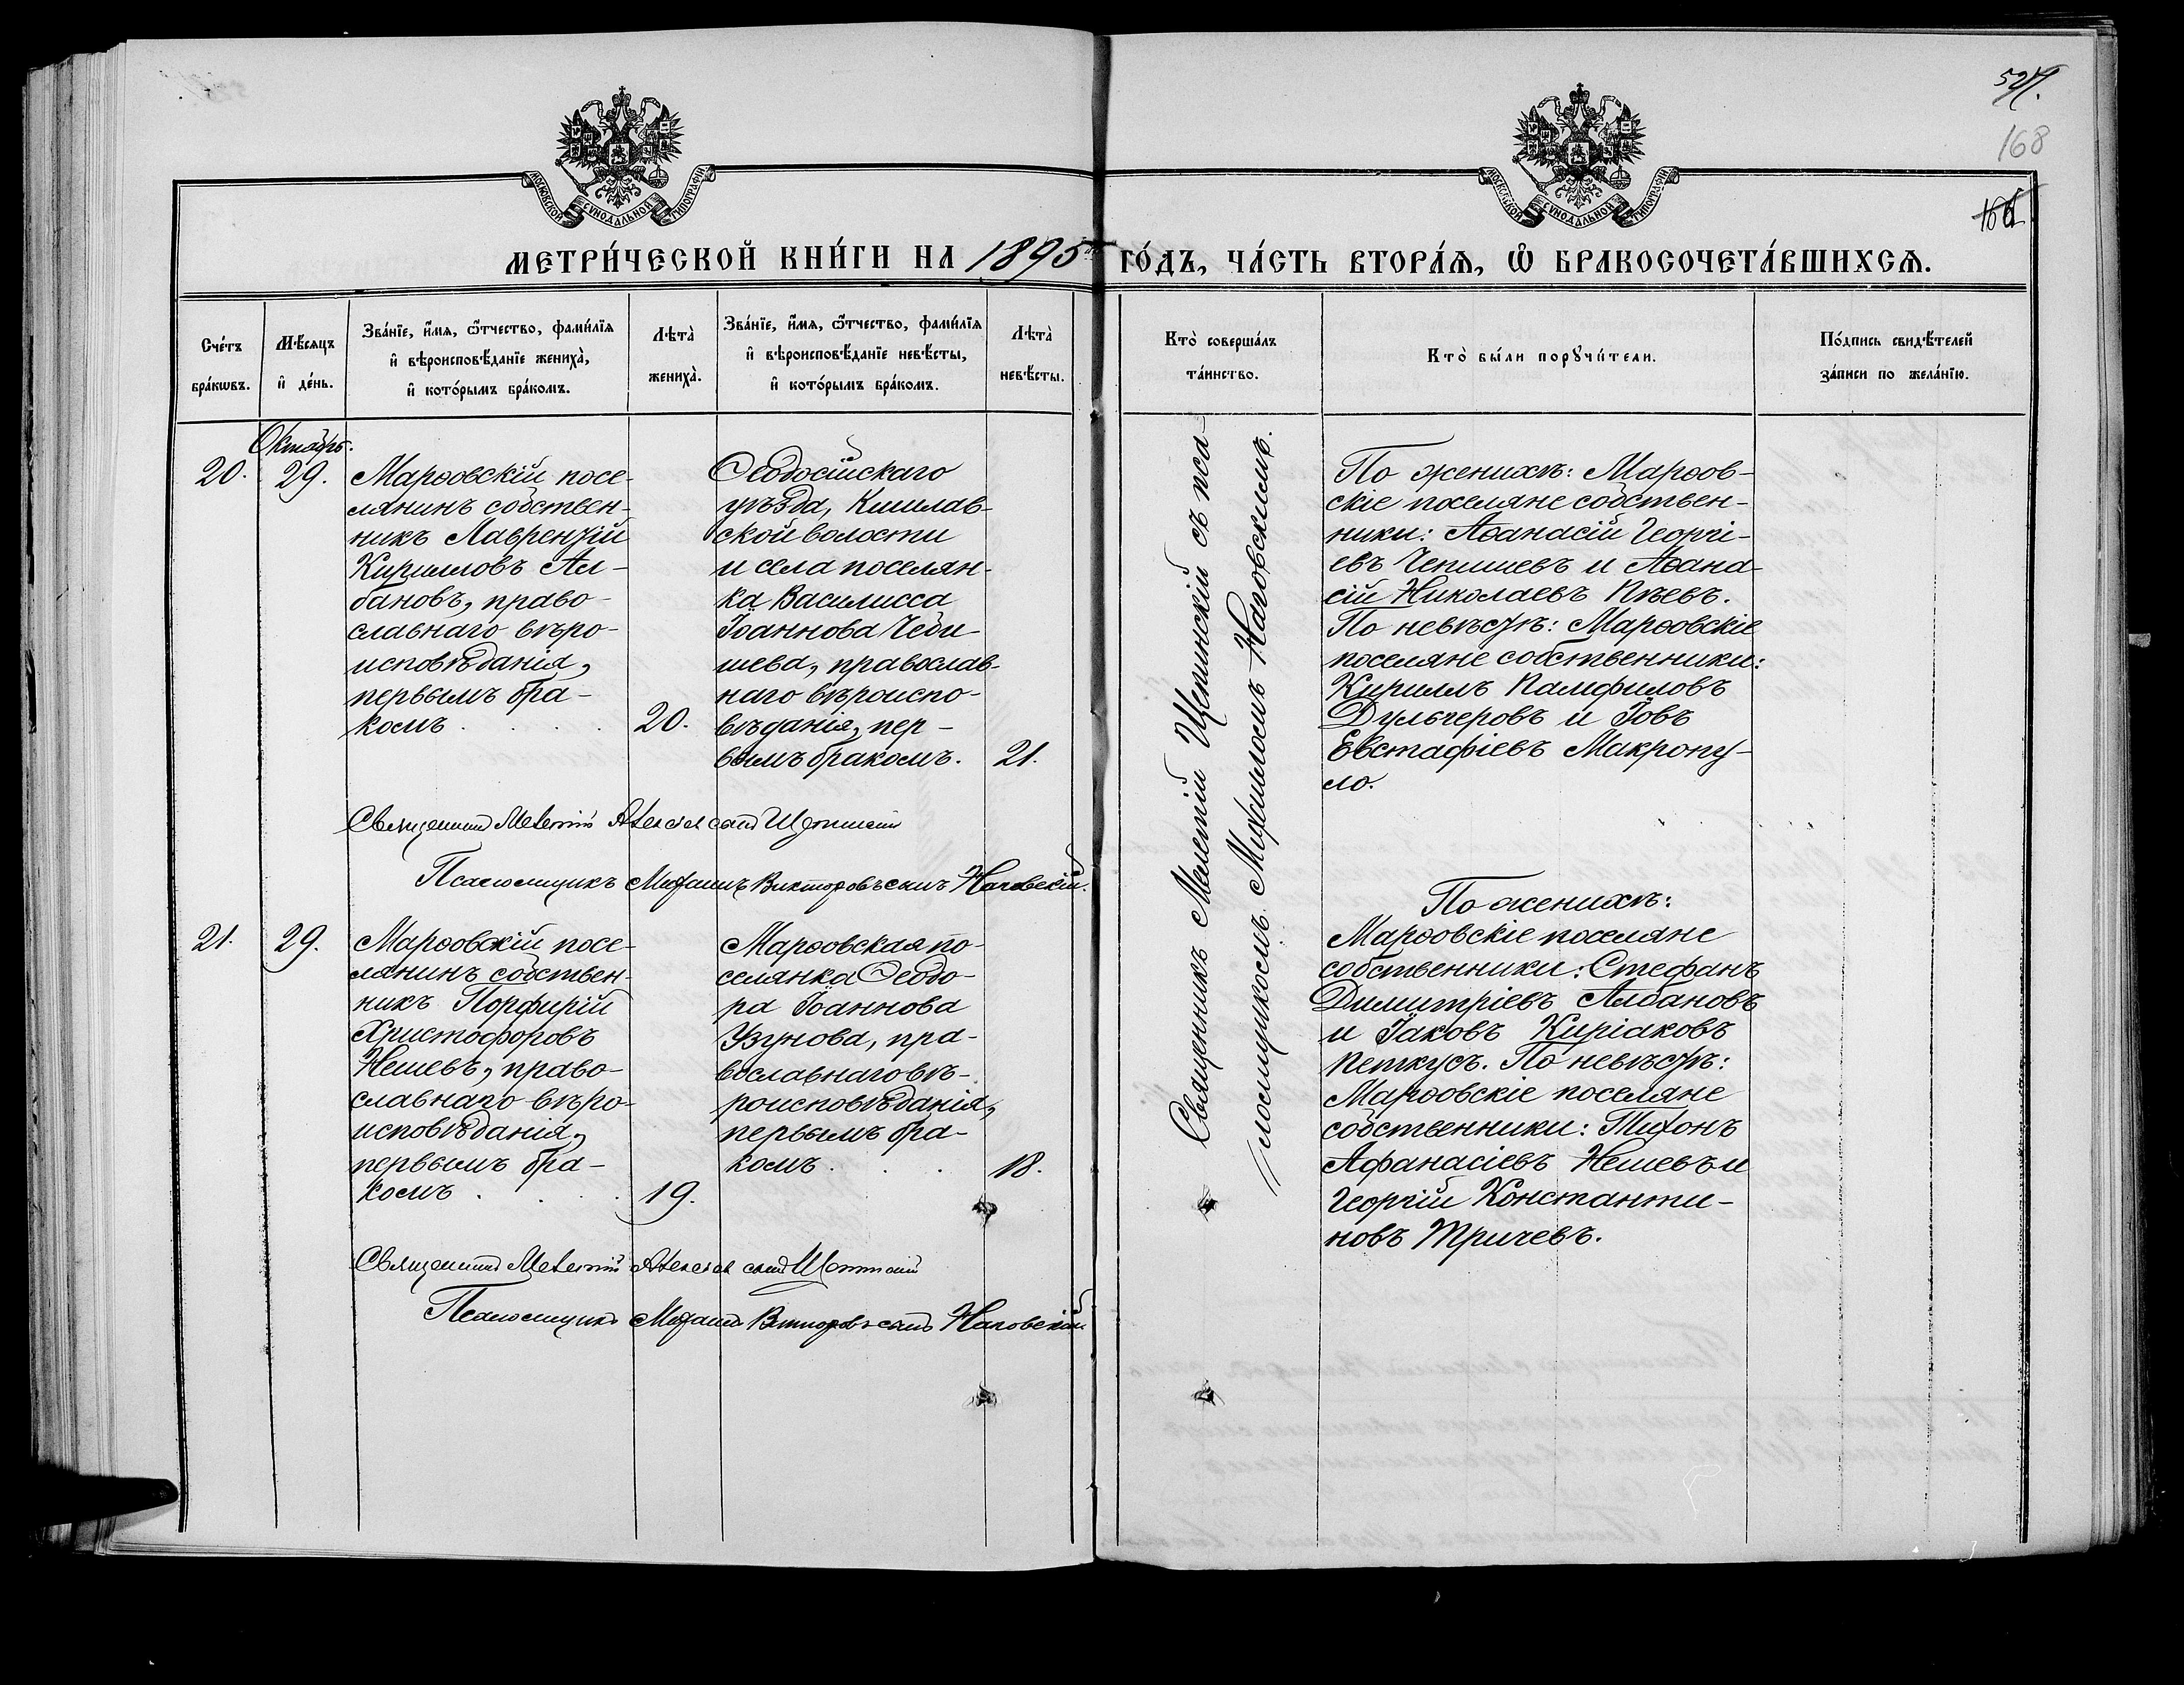 527.
168
МОСКОВСКОЙ СѴНОДАЛЬНОЙ ТИПОГРАФІИ
МОСКОВСКОЙ СѴНОДАЛЬНОЙ ТИПОГРАФІИ
МЕТРИ́ЧЕСКОЙ КНИ́ГИ НА 1895 ГО́ДЪ, ЧА́СТЬ ВТОРА́Ѧ, Ѽ БРАКОСОЧЕТА́ВШИХСѦ.
Сче́тъ
бра́кѡвъ.
Мѣ́сяцъ
и҆ де́нь.
Зва́нїе, и҆́мѧ, ѻ҆́тчество, фами́лїѧ
и҆ вѣроисповѣ́данїе жениха̀,
и҆ кото́рымъ бра́комъ.
Лѣта̀
жениха̀.
Зва́нїе, и҆́мѧ, ѻ҆́тчество, фами́лїѧ
и҆ вѣроисповѣ́данїе невѣ́сты,
и҆ кото́рымъ бра́комъ.
Лѣта̀
невѣ́сты.
Кто̀ соверша́лъ
та́инство.
Кто̀ бы́ли порꙋчи́тели.
По́дпись свидѣ́телей
за́писи по жела́нїю.
Октябрь.
20.
29.
Марѳовскій посе-
лянинъ собствен-
никъ Лаврентій
Кирилловъ Ал-
бановъ, право-
славнаго вѣро-
исповѣданія,
первымъ бра-
комъ . . . .
20.
Ѳеодосійскаго
уѣзда, Кишлав-
ской волости
и села поселян-
ка Василисса
Іоаннова Чеби
шева, православ-
наго вѣроиспо-
вѣданія, пер-
вымъ бракомъ.
21.
Священникъ Мелетій Щепинскій съ пса-
ломщикомъ Михаиломъ Наговскимъ.
По женихѣ: Марѳов-
скіе поселяне собствен-
ники: Аѳанасій Георгі-
евъ Чепишевъ и Аѳана-
сій Николаевъ Пѣевъ.
По невѣстѣ: Марѳовскіе
поселяне собственники:
Кириллъ Памфиловъ
Дульгеровъ и Іовъ
Евстафіевъ Макропу-
ло.
Священникъ Мелетій Алексѣевъ сынъ Щепинскій
Псаломщикъ Михаилъ Викторовъ сынъ Наговскій.
21.
29.
Марѳовскій посе-
лянинъ собствен-
никъ Порфирій
Христофоровъ
Нешевъ, право-
славнаго вѣро-
исповѣданія,
первымъ бра-
комъ . . . .
19.
Марѳовская по-
селянка Ѳеодо-
ра Іоаннова
Узунова, пра-
вославнаго вѣ-
роисповѣданія,
первымъ бра-
комъ . . .
18.
По женихѣ:
Марѳовскіе поселяне
собственники: Стефанъ
Димитріевъ Албановъ
и Іаковъ Киріаковъ
Петкусъ. По невѣстѣ:
Марѳовскіе поселяне
собственники: Тихонъ
Афанасіевъ Нешевъ и
Георгій Константи-
новъ Тричевъ.
Священникъ Мелетій Алексѣевъ сынъ Щепинскій
Псаломщикъ Михаилъ Викторовъ сынъ Наговскій